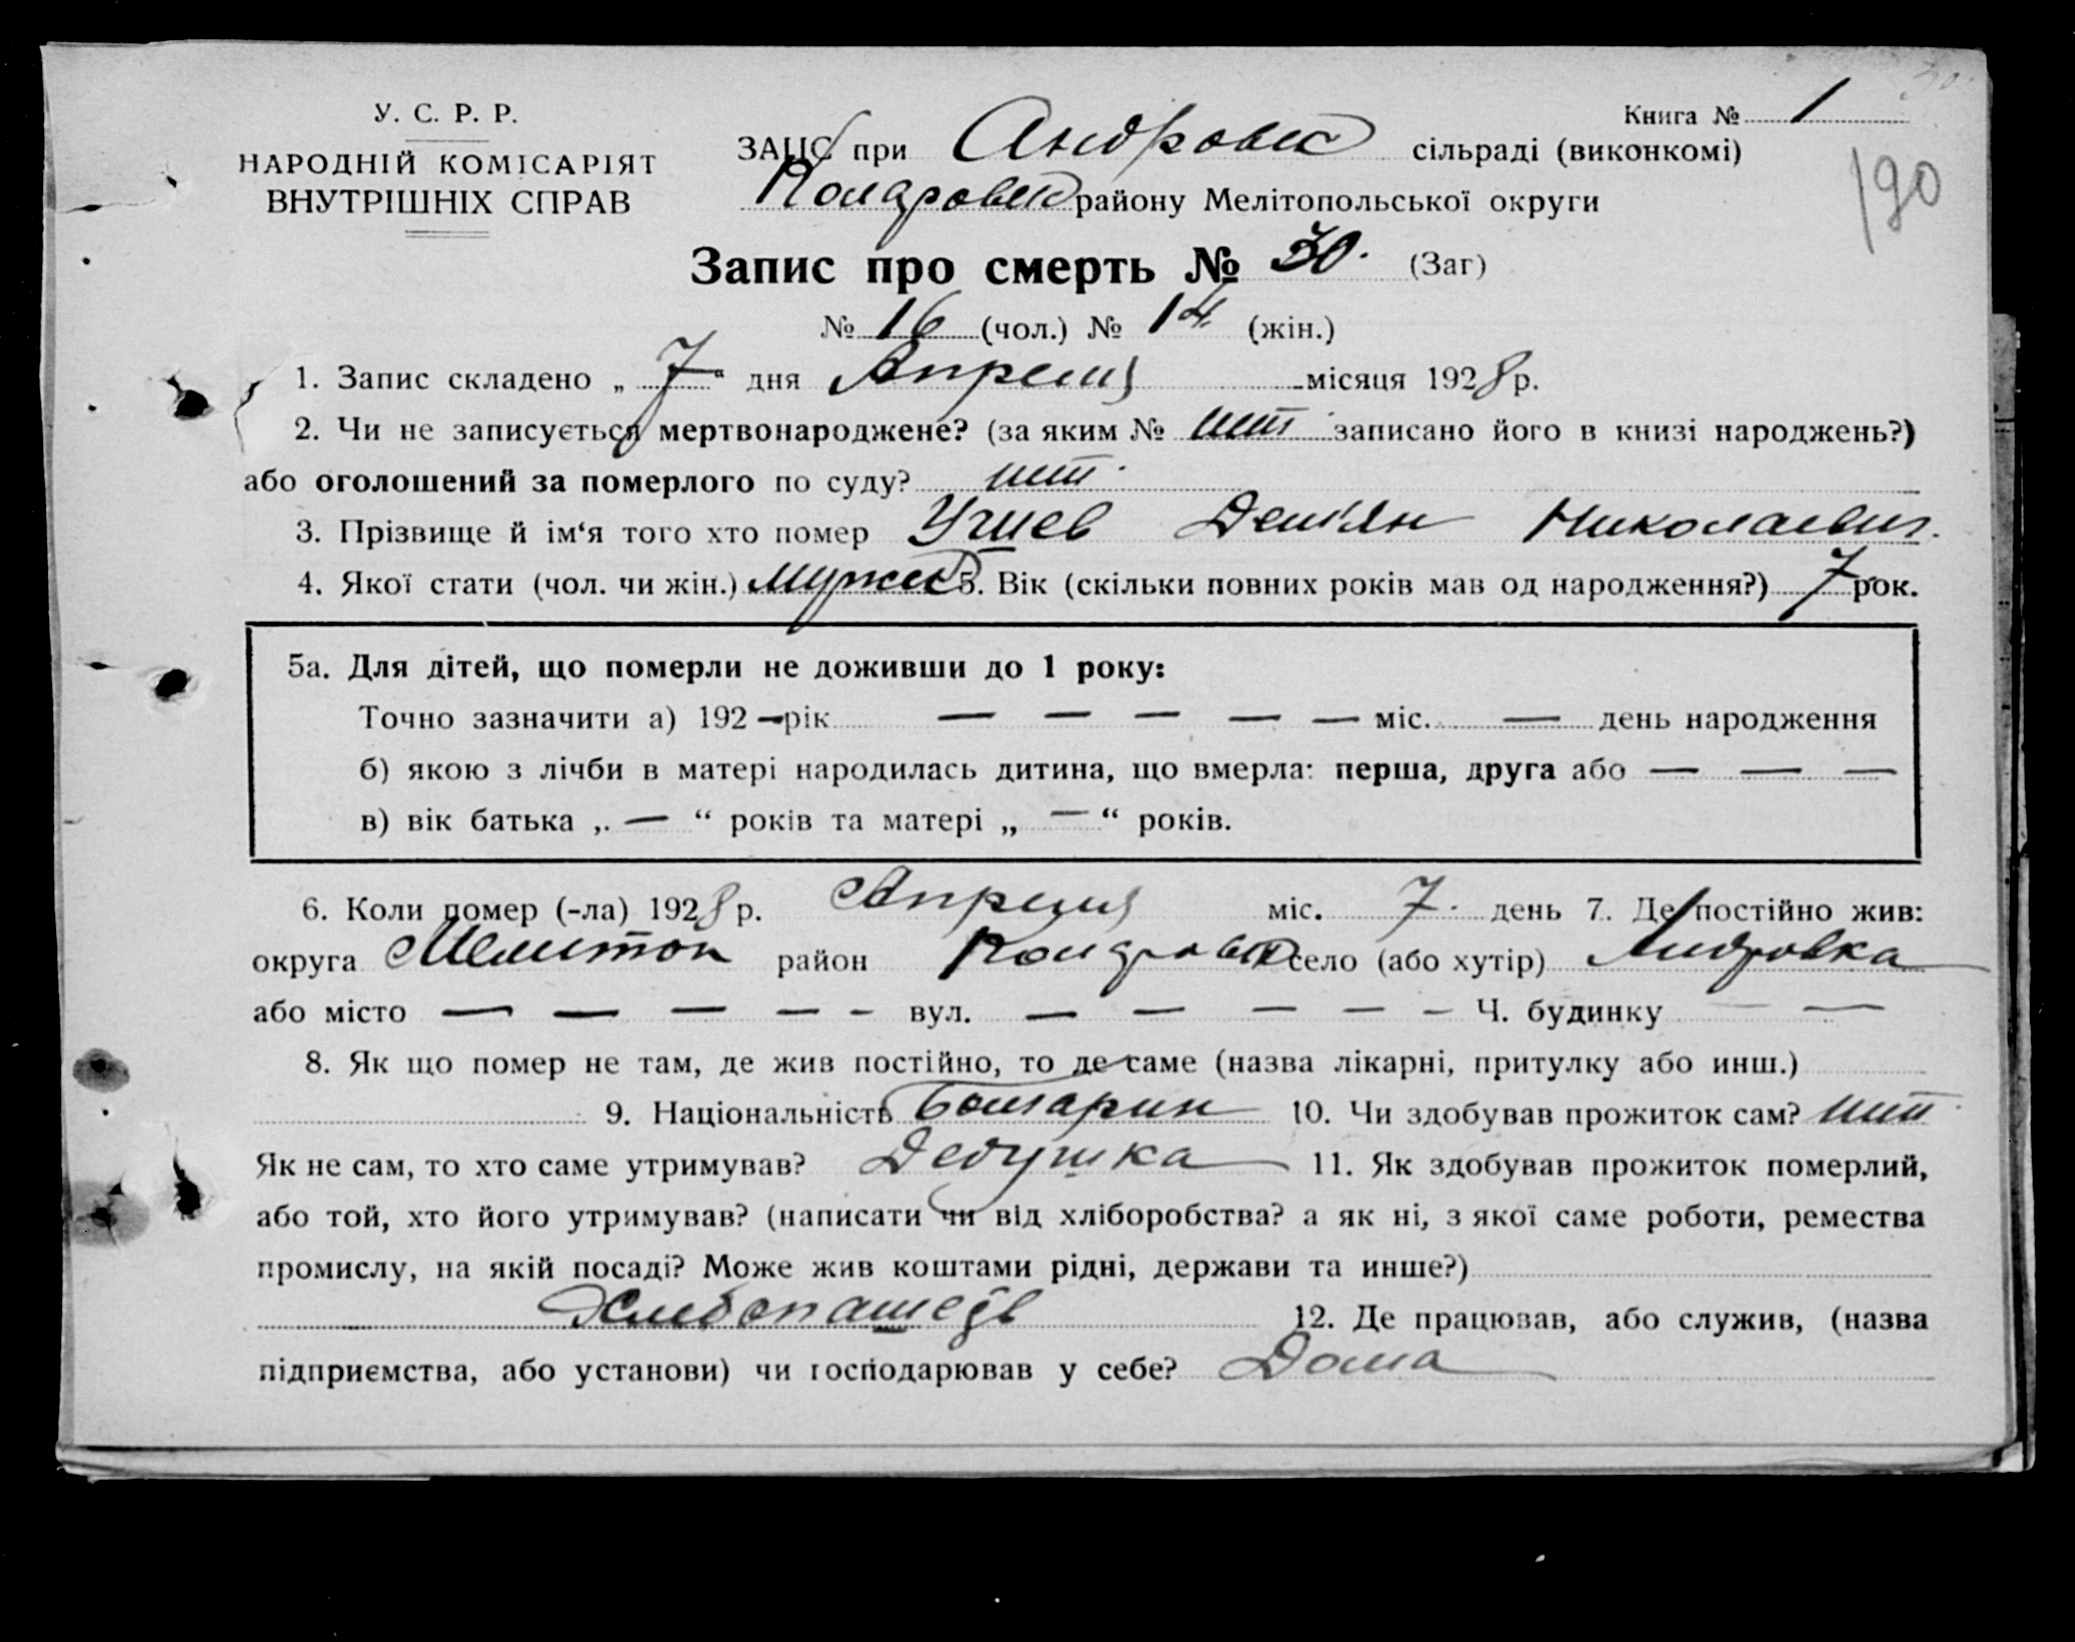 У. С. Р. Р.
НАРОДНІЙ КОМІСАРІЯТ
ВНУТРІШНІХ СПРАВ
Книга № 1
190
ЗАЦС при Андровск сільраді (виконкомі)
району Мелітопольської округи
Запис про смерть № 30. (Заг)
№ 16 (чол.) № 14 (жін.)
1. Запис складено „ 7 “ дня Апреля місяця 1928 р.
2. Чи не записується мертвонароджене? (за яким № нет записано його в книзі народжень?)
або оголошений за померлого по суду? нет.
3. Прізвище й ім‘я того хто помер Демьян Николаевич.
4. Якої стати (чол. чи жін.) Мужск 5. Вік (скільки повних років мав од народження?) 7 рок.
5а. Для дітей, що померли не доживши до 1 року:
Точно зазначити а) 192 — рік — — — — — міс. — день народження
б) якою з лічби в матері народилась дитина, що вмерла: перша, друга або — — —
в) вік батька „ — “ років та матері „ — “ років.
6. Коли помер (-ла) 1928 р. Апреля міс. 7. день 7. Де постійно жив:
округа Мелитоп район село (або хутір) Андровка
або місто — — — — - вул. — — — — — Ч. будинку — —
8. Як що помер не там, де жив постійно, то де саме (назва лікарні, притулку або инш.)
9. Національність Болгарин 10. Чи здобував прожиток сам? нет
Як не сам, то хто саме утримував? Дедушка 11. Як здобував прожиток померлий,
або той, хто його утримував? (написати чи від хліборобства? а як ні, з якої саме роботи, ремества
промислу, на якій посаді? Може жив коштами рідні, держави та инше?)
12. Де працював, або служив, (назва
підприємства, або установи) чи господарював у себе? Дома